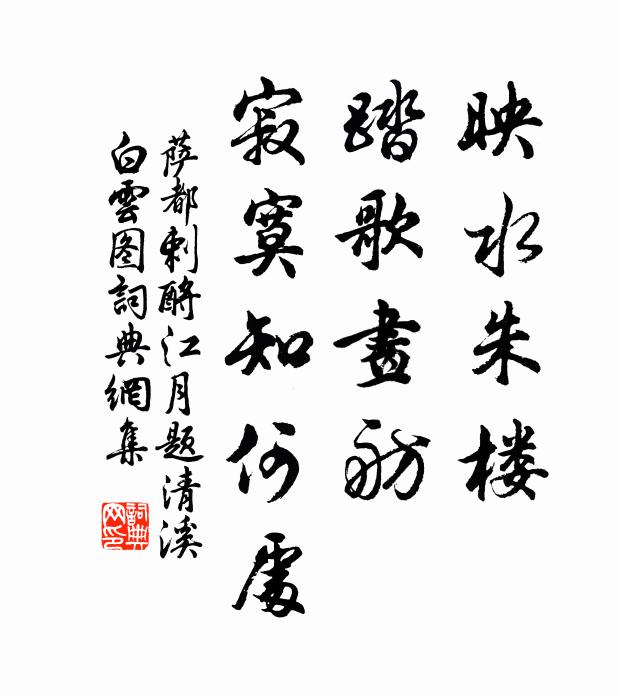 映水朱楼
踏歌畫舫
寂寞知何處
萨都剌酹江月题清溪
白雲图詞典網集
詞典网印